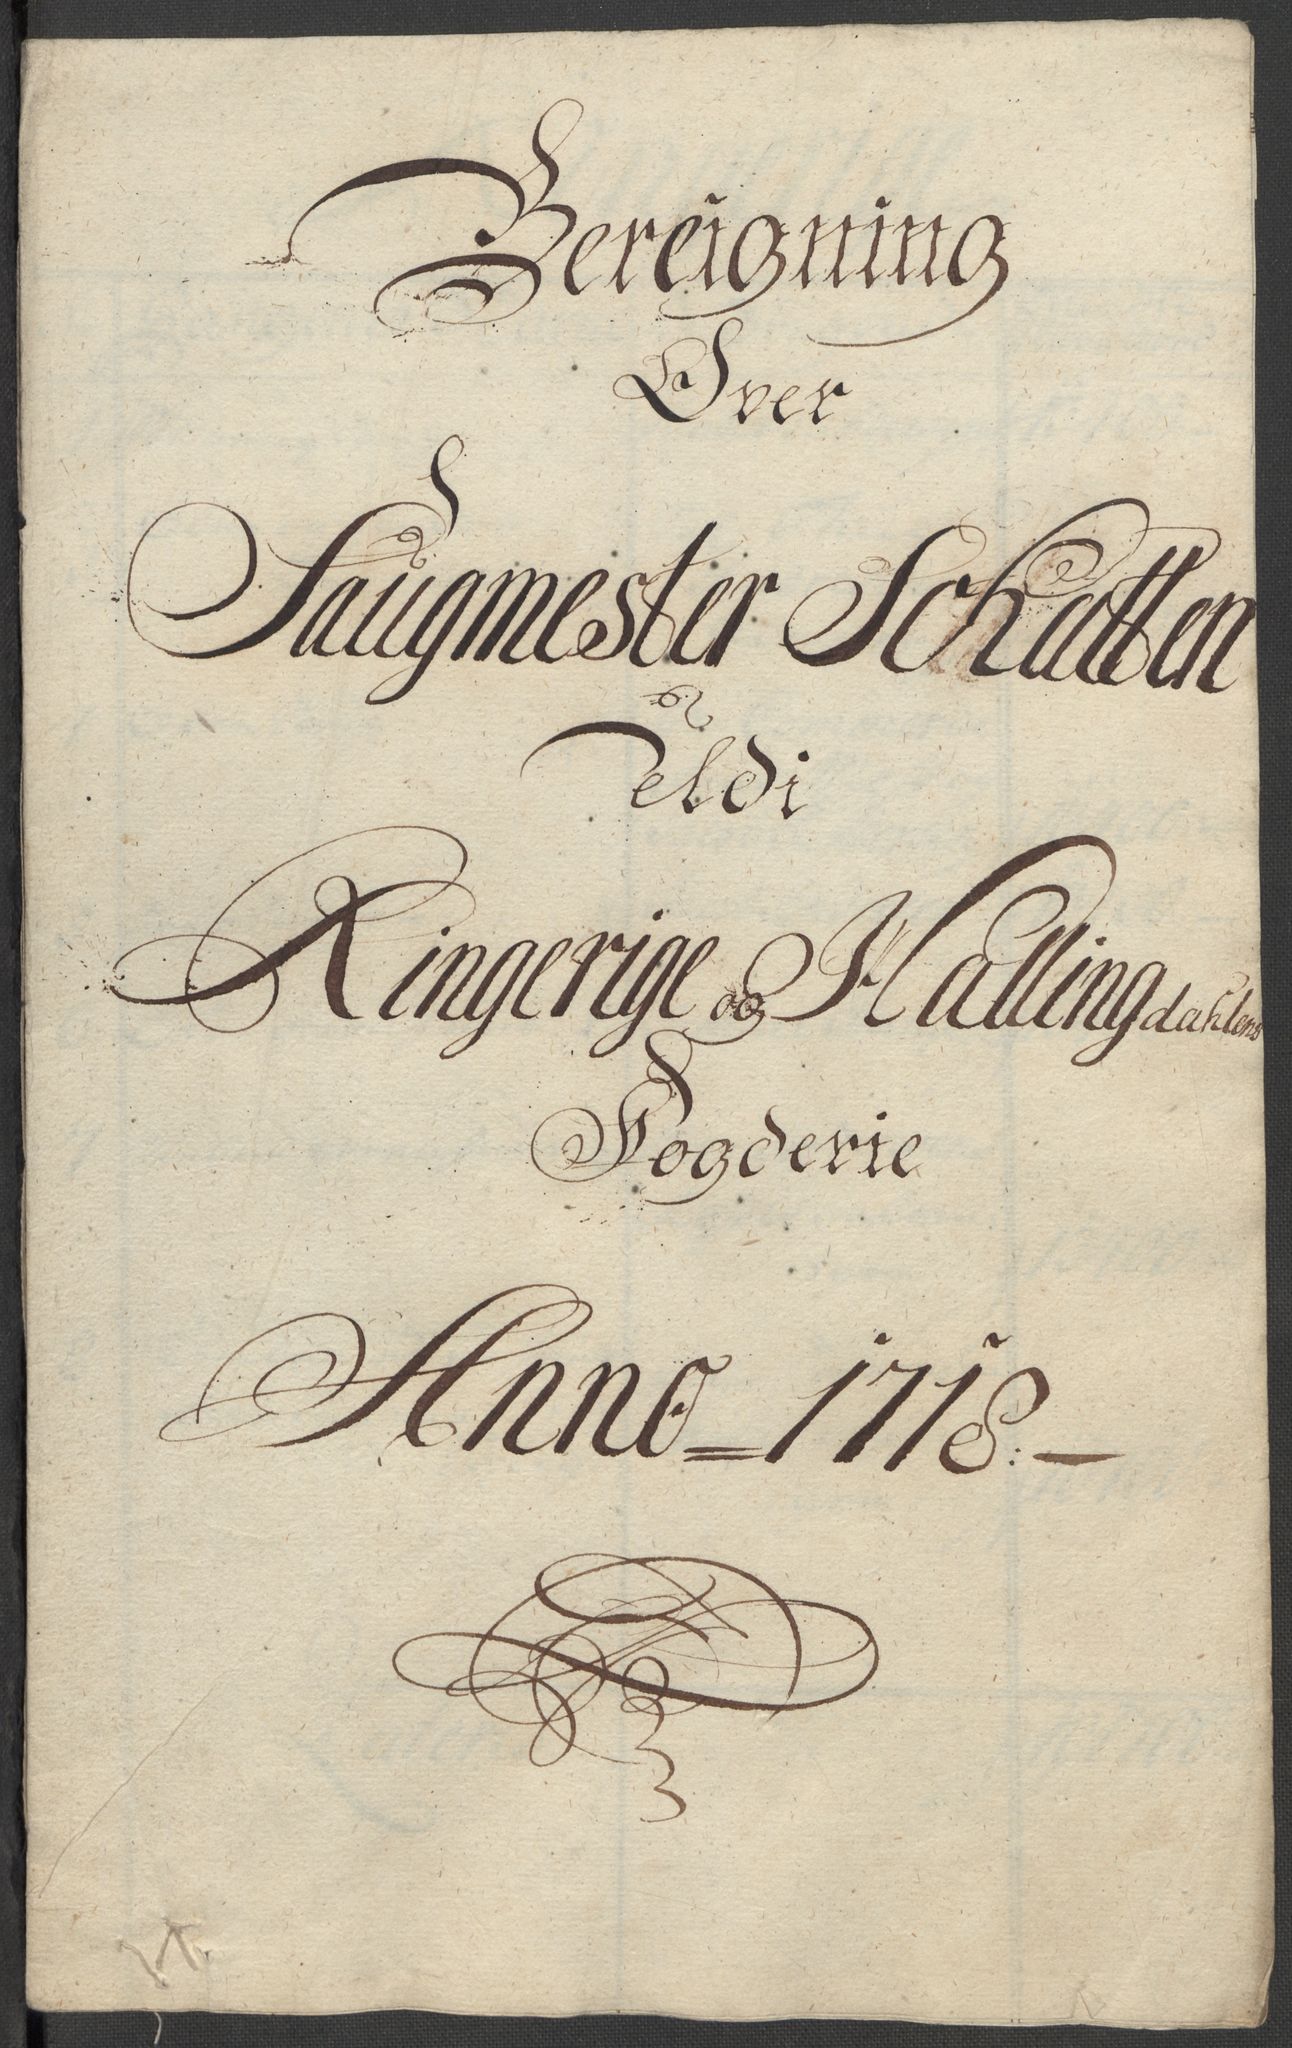 Bereigning
Over
Saugmester Schatten
Udi
Ringerige og Hallingdahlens
Fogderie
Anno 1718.